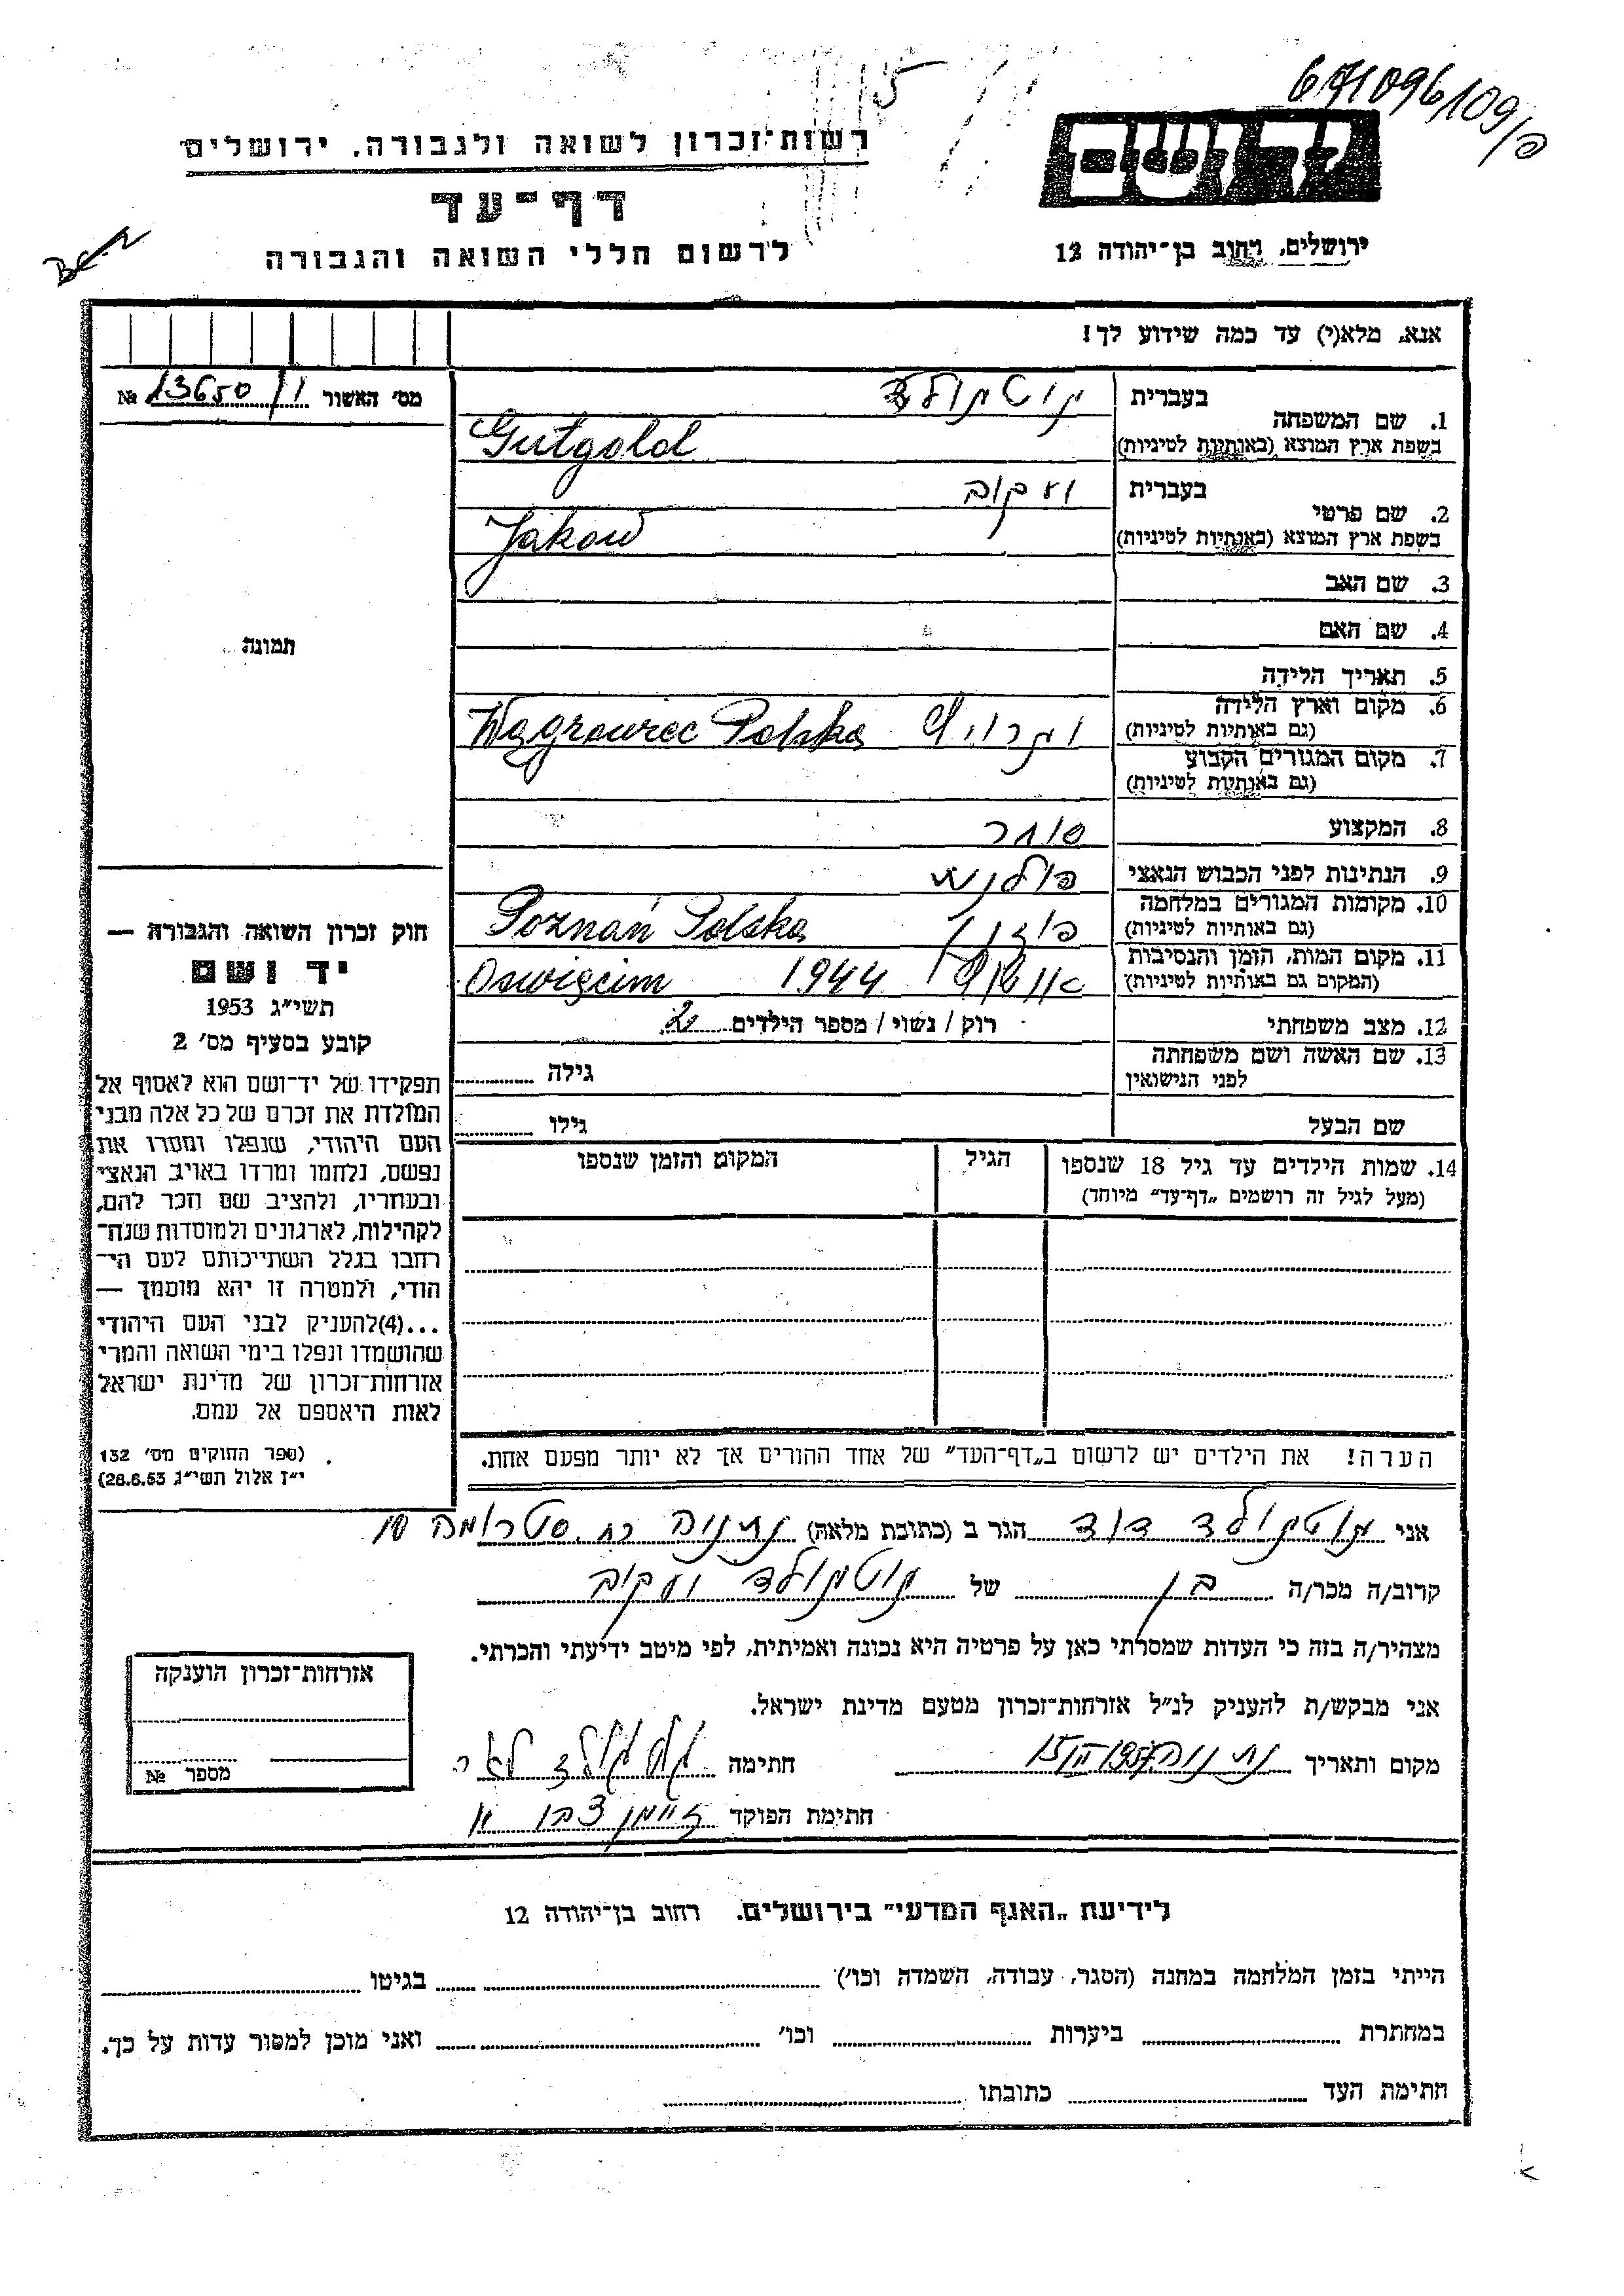 671096/109
רשות־זכרון לשואה ולגבורה, ירושלים
דף־עד
לרשום חללי השואה והגבורה
יד ושם
ירושלים, רחוב בן־יהודה 12
אנא, מלא(י) עד כמה שידוע לך!
מס' האשור № 13650/1
1. שם המשפחה
בעברית גוטגולד
בשפת ארץ המוצא (באותיות לטיניות) Gutgold
2. שם פרטי
בעברית יעקוב
בשפת ארץ המוצא (באותיות לטיניות) Jakow
3. שם האב
4. שם האם
5. תאריך הלידה
6. מקום וארץ הלידה
(גם באותיות לטיניות) Wągrowiec Polska
7. מקום המגורים הקבוע
(גם באותיות לטיניות)
8. המקצוע סוחר
9. הנתינות לפני הכבוש הנאצי פולנית
10. מקומות המגורים במלחמה
(גם באותיות לטיניות) פוזנן Poznań Polska
11. מקום המות, הזמן והנסיבות
(המקום גם באותיות לטיניות) 1944 Oswięcim
12. מצב משפחתי רוק / נשוי / מספר הילדים 2
13. שם האשה ושם משפחתה
לפני הנישואין
גילה
שם הבעל גילו
14. שמות הילדים עד גיל 18 שנספו
(מעל לגיל זה רושמים „דף־עד" מיוחד)
הגיל
המקום והזמן שנספו
הערה! את הילדים יש לרשום ב„דף־העד" של אחד ההורים אך לא יותר מפעם אחת.
תמונה
חוק זכרון השואה והגבורה —
יד ושם
תשי"ג 1953
קובע בסעיף מס' 2
תפקידו של יד־ושם הוא לאסוף אל
המולדת את זכרם של כל אלה מבני
העם היהודי, שנפלו ומסרו את
נפשם, נלחמו ומרדו באויב הנאצי
ובעוזריו, ולהציב שם וזכר להם,
לקהילות, לארגונים ולמוסדות שנח־
רחבו בגלל השתייכותם לעם הי־
הודי, ולמטרה זו יהא מוסמך —
...(4) להעניק לבני העם היהודי
שהושמדו ונפלו בימי השואה והמרי
אזרחות־זכרון של מדינת ישראל
לאות היאספם אל עמם.
(ספר החוקים מס' 132
י"ז אלול תשי"ג 28.8.53)
אני גוטגולד דוד הגר ב (כתובת מלאה) נתניה רח. סטרומה
קרוב/ה מכר/ה בן של גוטגולד יעקוב
מצהיר/ה בזה כי העדות שמסרתי כאן על פרטיה היא נכונה ואמיתית, לפי מיטב ידיעתי והכרתי.
אני מבקש/ת להעניק לנ"ל אזרחות־זכרון מטעם מדינת ישראל.
מקום ותאריך נתניה חתימה גוטגולד
חתימת הפוקד
אזרחות־זכרון הוענקה
מספר №
לידיעת „האגף המדעי" בירושלים. רחוב בן־יהודה 12
הייתי בזמן המלחמה במחנה (הסגר, עבודה, השמדה וכו') בגיטו
במחתרת ביערות וכו' ואני מוכן למסור עדות על כך.
חתימת העד כתובתו